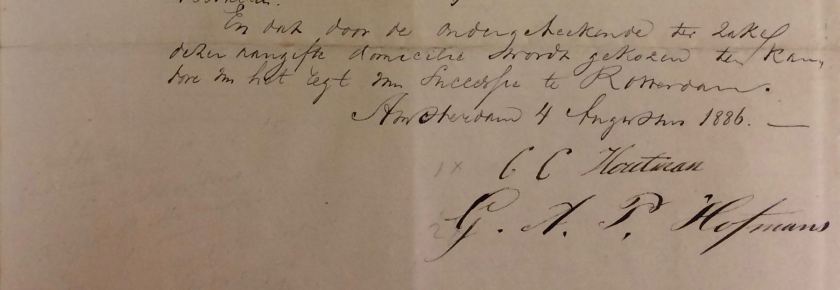 En dat door de ondergeteekende ter zake
dezer aangifte domicilie wordt gekozen ten kan,
tore van het regt van Successie te Rotterdam.
Amsterdam 4 Augustus 1886. —
1x C C Houtman
2 G. A. P. Hofmans